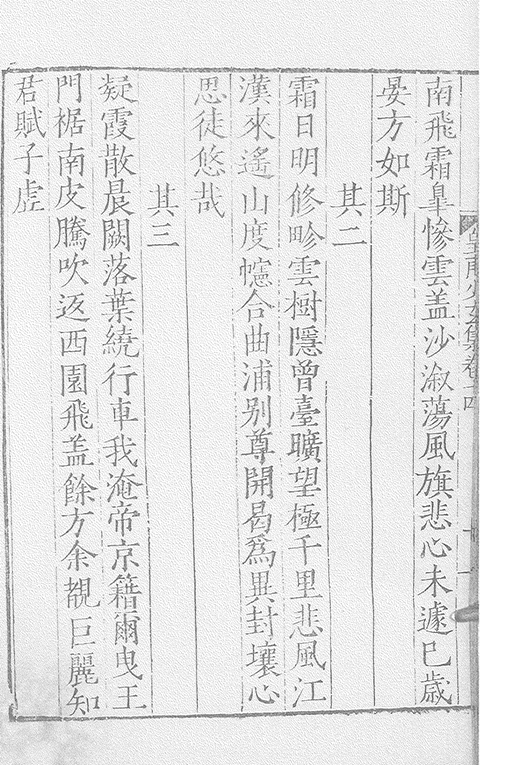 南飛霜臯慘雲盖沙溆蕩風旗悲心未遽巳歲
晏方如斯
其二
霜日明修畛雲樹隱曾臺曠望極千里悲風江
漢來遙山度幰合曲浦别尊開曷爲異封壤心
思徒悠哉
其三
凝霞散晨闕落葉繞行車我淹帝京籍爾曳王
門裾南皮騰吹返西園飛盖餘方余覩巨麗知
君賦子虛